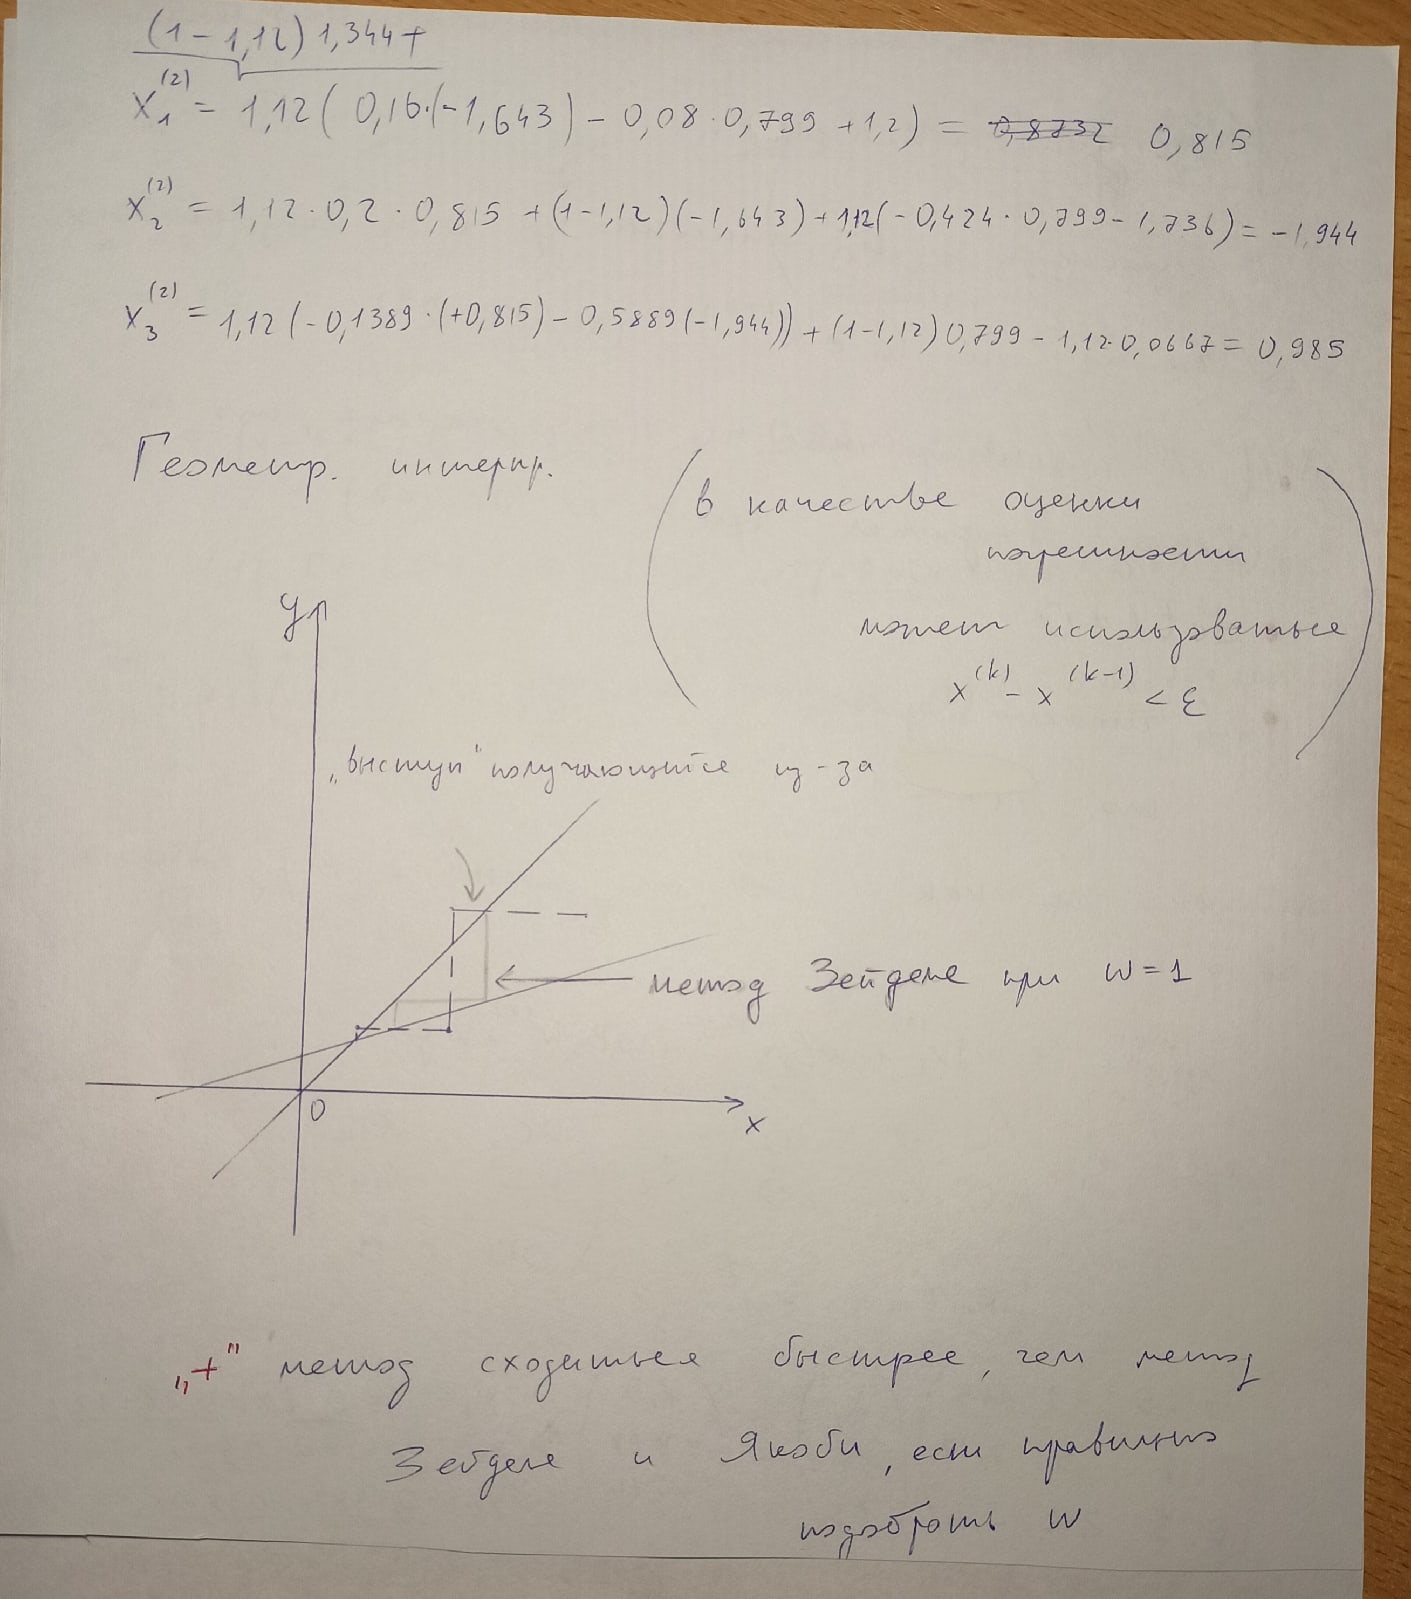 (1-1,12) 1,344+
x₁⁽²⁾ = 1,12( 0,16·(-1,643) - 0,08·0,799 +1,2) = 0,8732 0,815
x₂⁽²⁾ = 1,12·0,2·0,815 +(1-1,12)(-1,643)+1,12(-0,424·0,799-1,736)= -1,944
x₃⁽²⁾ = 1,12(-0,1389·(+0,815)-0,5889(-1,944))+(1-1,12)0,799-1,12·0,0667= 0,985
Геометр. интерпр.
(в качестве оценки
погрешности
может использоваться
x⁽ᵏ⁾ - x⁽ᵏ⁻¹⁾ < ε)
y
„выступ" получающийся из-за
метод Зейделя при w=1
0
x
„+" метод сходиться быстрее, чем метод
Зейделя и Якоби, если правильно
подобрать w